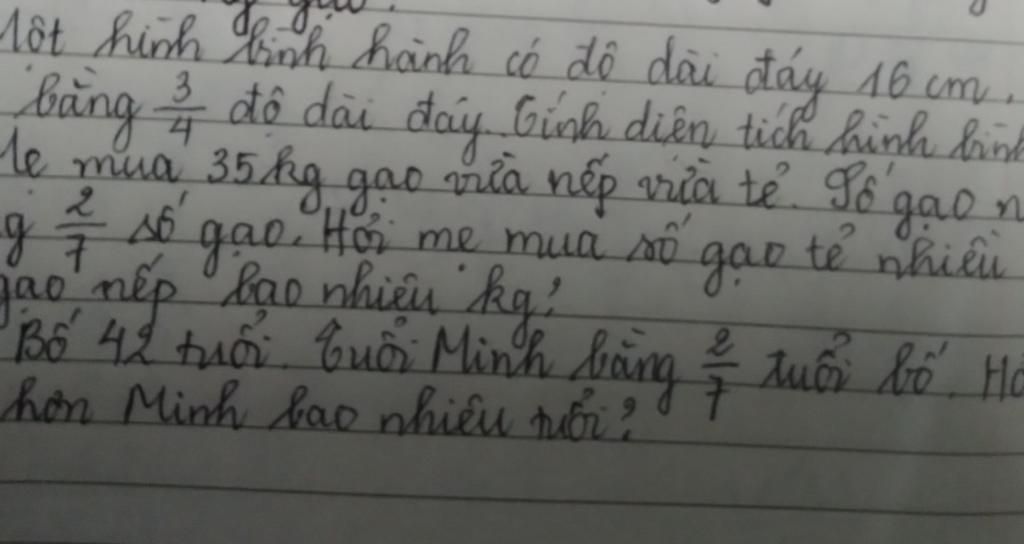 Một hình bình hành có độ dài đáy 16 cm,
bằng 3/4 độ dài đáy. Tính diện tích hình bình
Mẹ mua 35kg gạo vừa nếp vừa tẻ. Số gạo n
g 2/7 số gạo. Hỏi mẹ mua số gạo tẻ nhiều
gạo nếp bao nhiêu kg?
Bố 42 tuổi. Tuổi Minh bằng 2/7 tuổi bố. Hỏ
hơn Minh bao nhiêu tuổi?